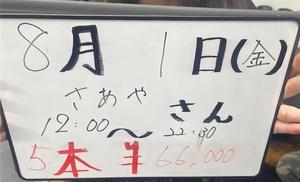 8月1日(金)
さあや
さん
12:00〜22:30
5本 ¥66,000